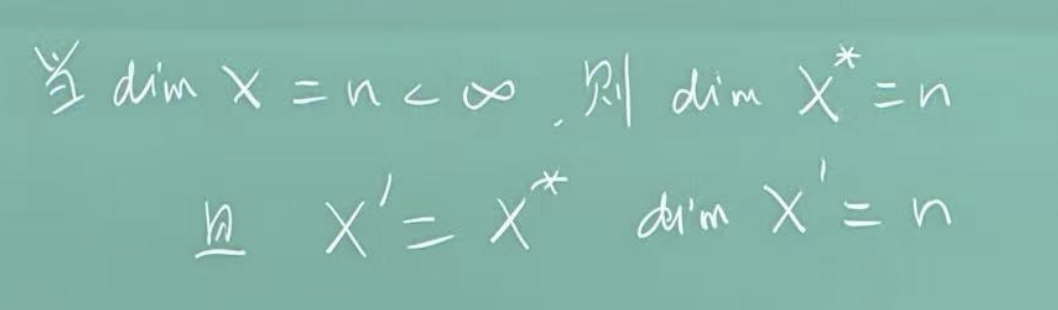 当 dim X = n < ∞, 则 dim X* = n
且 X' = X* dim X' = n